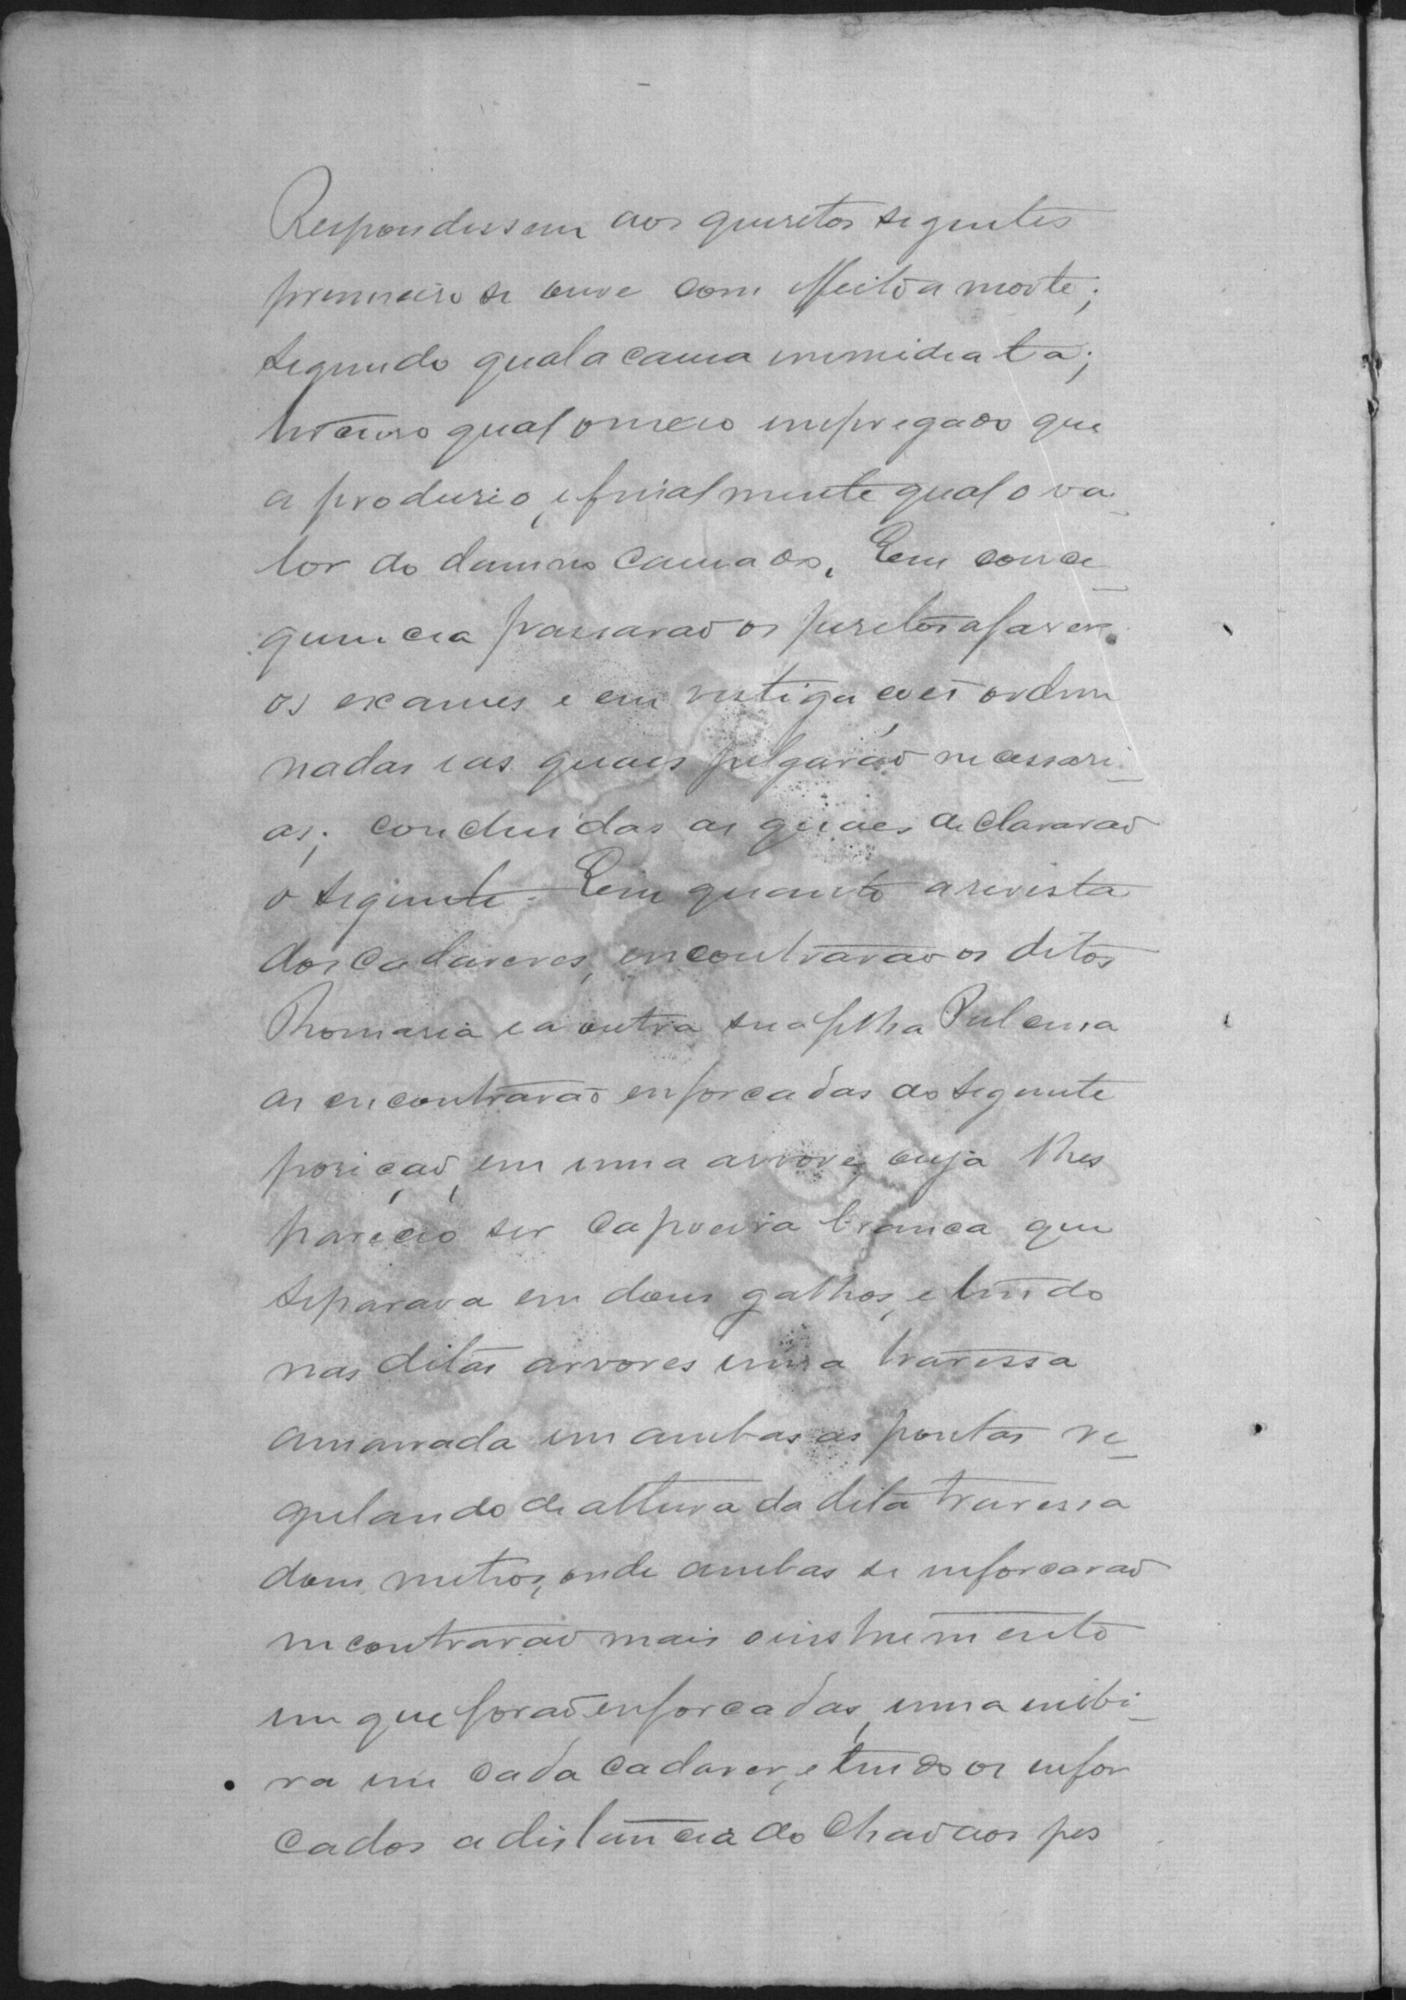 Respondessem aos quesitos seguites
primmeiro se ouve com effeito a morte;
segundo qual a causa immidiata;
terceiro qual o meio empregado que
a produsio, e finalmente qual o va-
lor do damno causado. Em conce-
quencia passarao os peritos a faser
os exames e em vestigações ordem
nadas e as quaes julgarão necessari-
as; concluidas as quaes declararao
o seguinte. Em quanto a revista
dos cadaveres, encontrarao os ditos
Romaria e a outra sua filha Pulema
as encontrarão enforcadas do seguinte
posição, em uma arvore, cuja lhes
pareceo ser capoeira branca que
separava em dous galhos, e tendo
nas ditas arvores uma travessa
amarrada em ambas as pontas re-
gulando de altura da dita travessa
dous metros, onde ambas se enforcarao
encontrarao mais o instrumento
em que forão enforcadas, uma embi-
ra em cada cadaver, e tendo os enfor
cados a distancia do chao aos pes